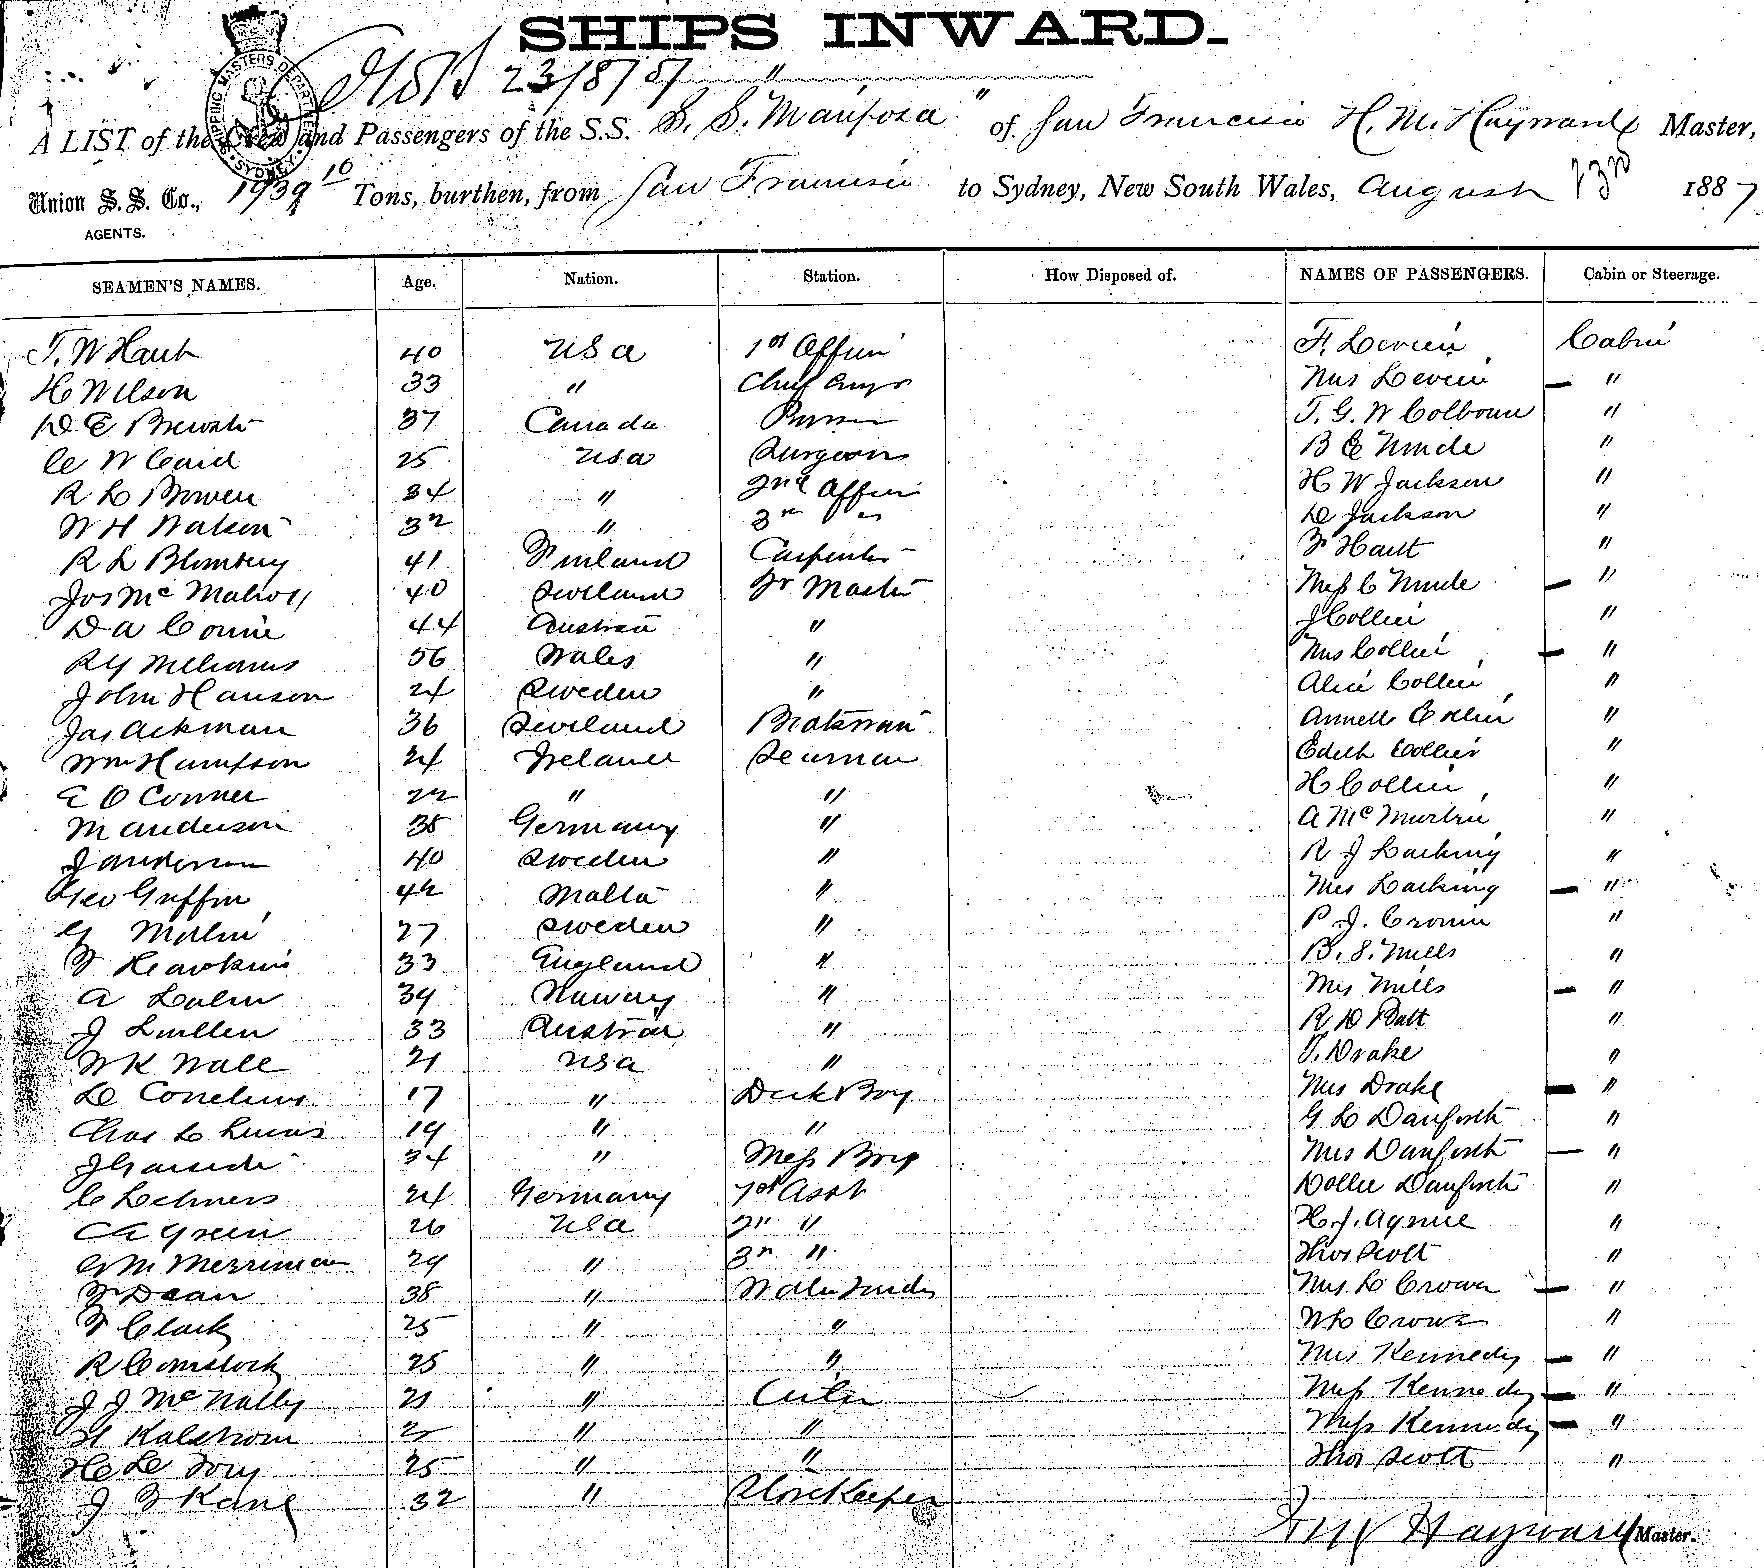 SHIPS INWARD.
23/8/87 "
A LIST of the Crew and Passengers of the S.S. S. S. Mariposa " of San Francisco H. M. Hayward Master,
Union S. S. Co., 1939 10 Tons, burthen, from San Francisco to Sydney, New South Wales, August 23rd 1887
AGENTS.
SHIPPING MASTERS DEPARTMENT SYDNEY
SEAMEN'S NAMES. Age. Nation. Station. How Disposed of. NAMES OF PASSENGERS. Cabin or Steerage.
T. W Hart 40 USA 1st Officer F. Levien Cabin
H Wilson 33 " Chief Mrs Levien — "
D E Brewster 37 Canada Purser T. G. W Colboun "
C W Card 25 USA Surgeon B E "
R L Bowen 34 " 2nd Officer H W Jackson "
W H Watson 32 " 3rd " D Jackson "
R L Blomberg 41 Finland Carpenter F Hart "
Jos Mc 40 Scotland Qr Master Miss C — "
D A 44 Austria " J Collier "
R G Williams 56 Wales " Mrs Collier — "
John Hanson 24 Sweden " Alice Collier "
Jas Ackman 36 Scotland Boatswain Annett Collier "
Wm Hampson 24 Ireland Seaman Edith Collier "
E O Conner 22 " " H Collier "
M Anderson 38 Germany " A Mc Murtrie "
J Anderson 40 Sweden " R J Larking "
Geo Griffin 42 Malta " Mrs Larking — "
G 27 Sweden " P. J. Cronin "
F Hawkins 33 England " B. S. Mills "
A 39 Norway " Mrs Mills — "
J 33 Austria " R D Batt "
W K Wall 21 USA " T. Drake "
D Cornelius 17 " Deck Boy Mrs Drake — "
Chas L Lucas 19 " " G L Danforth "
J Garside 34 " Mess Boy Mrs Danforth — "
C Lehners 24 Germany 1st Asst Dollie Danforth "
C A Green 26 USA 2n " H. J. Agnue "
G M Merriman 29 " 3n " Thos Scott "
F Dean 38 " Water Tender Mrs. L Crown — "
F Clark 25 " " "
R Comstock 25 " " Mrs Kennedy — "
J J Mc Nally 21 " Oiler Miss Kennedy — "
H Kalstrom " " Miss Kennedy — "
H De 25 " " Thos Scott "
J F Kane 32 " Storekeeper
H M Hayward Master.